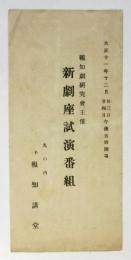 大正十一年十二月廿三日廿四日午後五時開場
報知劇研究會主催
新劇座試演番組
丸の内
報知講堂